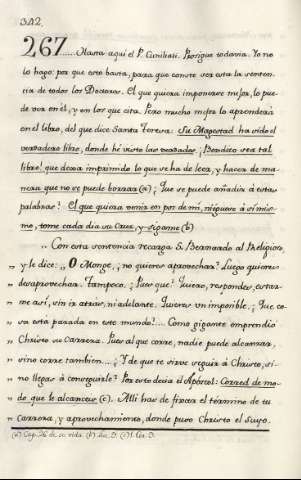 342.
267..... Hasta aqui el P. Cuniliati. Prosigue todavia. Yo no
lo hago: por que esto basta, para que conste ser esta la senten-
cia de todos los Doctores. El que quiera imponerse mejor, lo pue-
de ver en él, y en los que cita. Pero mucho mejor lo aprenderá
en el libro, del que dice Santa Teresa: Su Magestad ha sido el
verdadero libro, donde hé visto las verdades. ¡Bendito sea tal
libro! que dexa imprimido lo que se ha de leer, y hacer de ma-
nera que no se puede borrar (a) ¿Que se puede añadir á estas
palabras? El que quiera venir en pos de mí, nieguese á si mis-
mo, tome cada dia su Cruz, y sigame (b)
„ Con esta sentencia recarga S. Bernardo al Religioso,
„ y le dice: „ O Monge, ¿no quieres aprovechar? Luego quieres
„ desaprovechar. Tampoco. ¿Pues que? Quiero, respondes, estar-
„ me así, sin ir atras, ni adelante. Quieres un imposible. ¿Que co-
„ sa está parada en este mundo?.... Como gigante emprendió
„ Christo su Carrera. Pues al que corre, nadie puede alcanzar,
„ sino corre tambien.... ¿Y de que te sirve seguir á Christo, si-
„ no llegas á conseguirle? Por esto decia el Apóstol: Corred de mo-
„ do que le alcanceis (c). Alli has de fixar el término de tu
„ carrera, y aprovechamiento, donde puso Christo el suyo.
(a) Cap. 26 de su vida. (b) Luc. 9. (c) 1. Cor. 9.